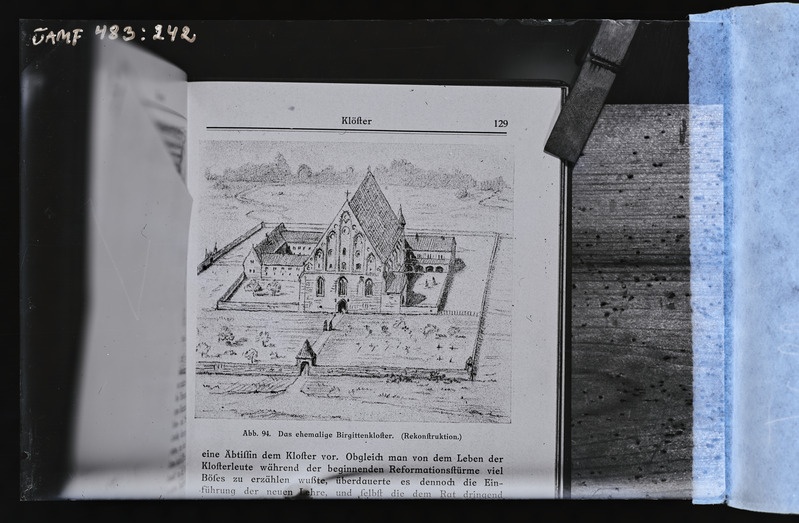 ÜAMF 483:242
Klöſter 129
Abb. 94. Das ehemalige Birgittenkloſter. (Rekonſtruktion.)
eine Äbtiſſin dem Kloſter vor. Obgleich man von dem Leben der
Kloſterleute während der beginnenden Reformationsſtürme viel
Böſes zu erzählen wußte, überdauerte es dennoch die Ein-
führung der neuen Lehre, und ſelbſt die dem Rat dringend